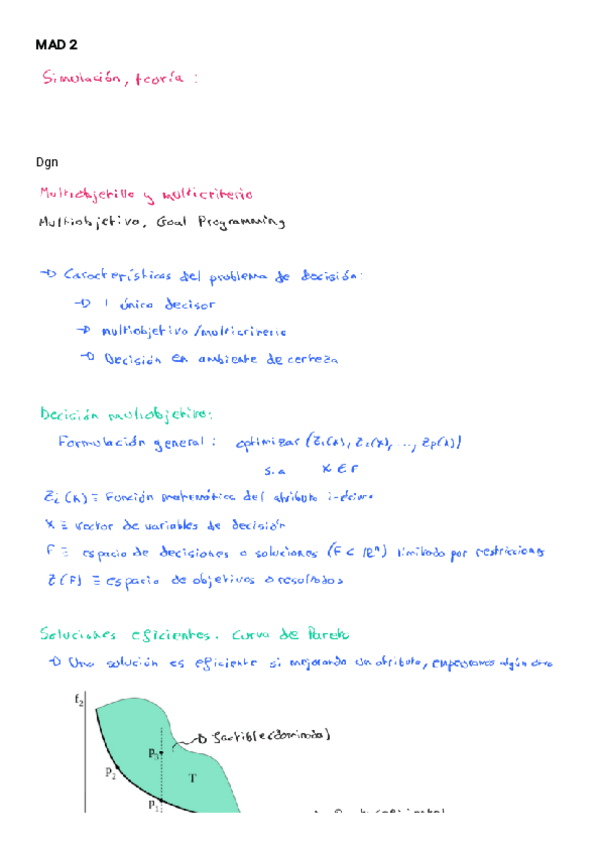 MAD 2
Simulación, teoría :
Dgn
Multiobjetivo y multicriterio
Multiobjetivo, Goal Programming
→ Características del problema de decisión:
→ 1 único decisor
→ multiobjetivo/multicriterio
→ Decisión en ambiente de certeza
Decisión multiobjetivo:
Formulación general : optimizar (Z₁(x), Z₂(x), ..., Zp(x))
s.a x ∈ F
Zi(x) ≡ Función matemática del atributo i-ésimo
X ≡ vector de variables de decisión
F ≡ espacio de decisiones o soluciones (F ⊂ ℝⁿ) limitado por restricciones
Z(F) ≡ espacio de objetivos o resultados
Soluciones eficientes. Curva de Pareto
→ Una solución es eficiente si mejorando un atributo, empeoramos algún otro
f₂
→ factible (dominada)
p₃
p₂
T
p₁